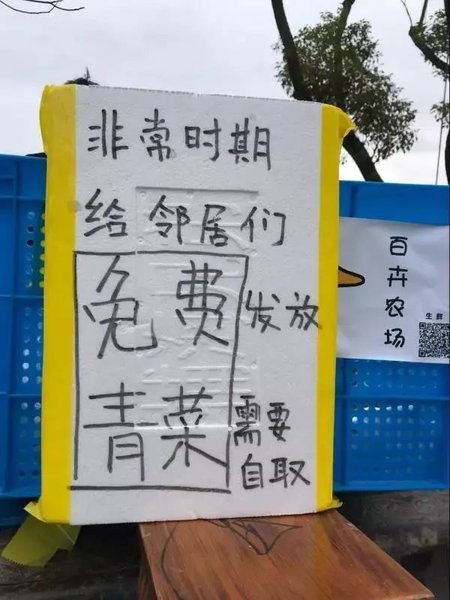 非常时期
给邻居们
免费发放
青菜需要
自取
百卉农场
生鲜